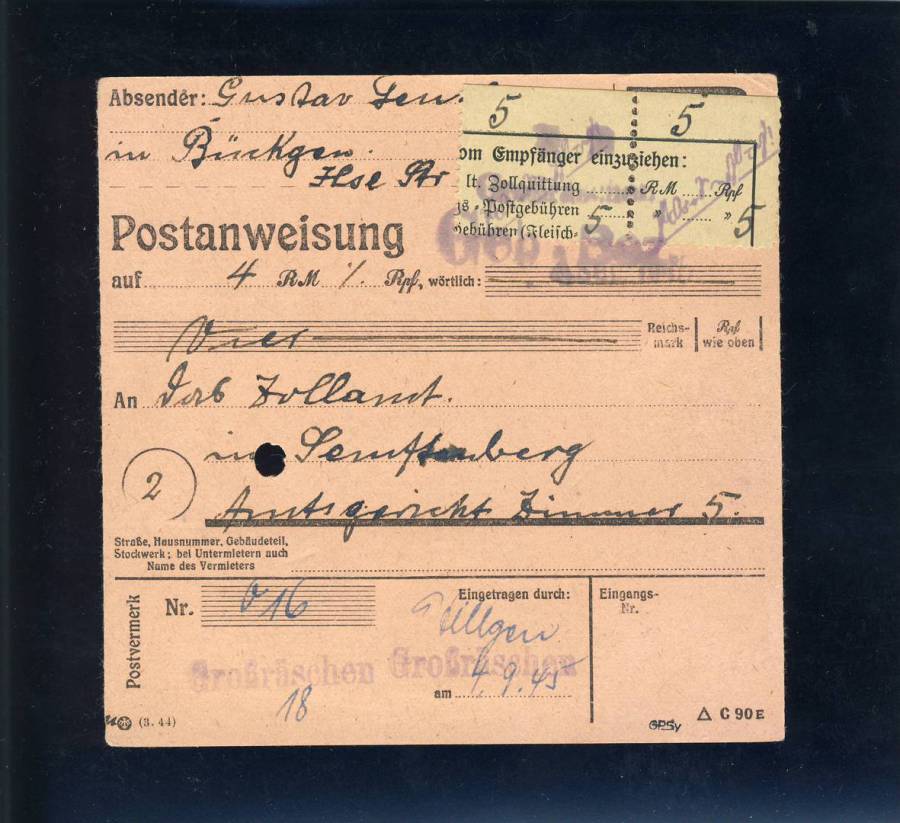 Absender: Gustav
in Bückgen.
Ilse Str
5 5
om Empfänger einzuziehen:
lt. Zollquittung RM Rpf
gs-Postgebühren 5 " " 5
gebühren (Fleisch-
Postanweisung
auf 4 RM /. Rpf, wörtlich:
Vier
Reichs- Rpf
mark wie oben
An das Zollamt.
in Senftenberg
2
Amtsgericht Zimmer 5.
Straße, Hausnummer, Gebäudeteil,
Stockwerk; bei Untermietern auch
Name des Vermieters
Postvermerk
Nr. 016
Eingetragen durch:
Eingangs-
Nr.
Großräschen Großräschen
18
am 4.9.45
(3. 44)
GPSy
△ C 90 E